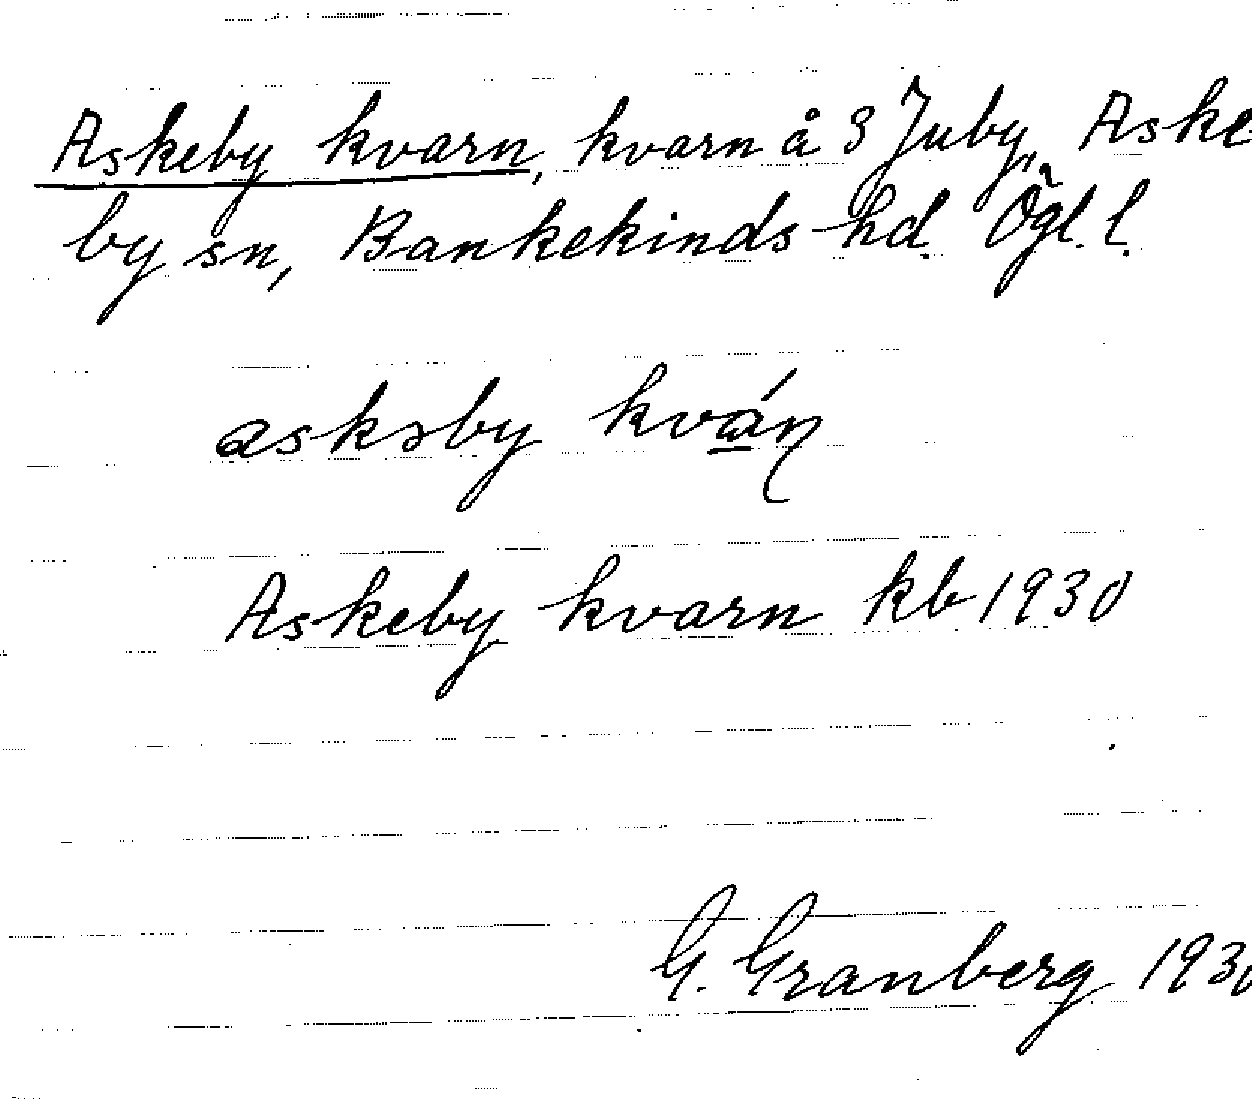 Askeby kvarn, kvarn å 3 Juby, Aske
by sn, Bankekinds hd. Ögl. l.
askəby kván
Askeby kvarn kb 1930
G. Granberg 1930